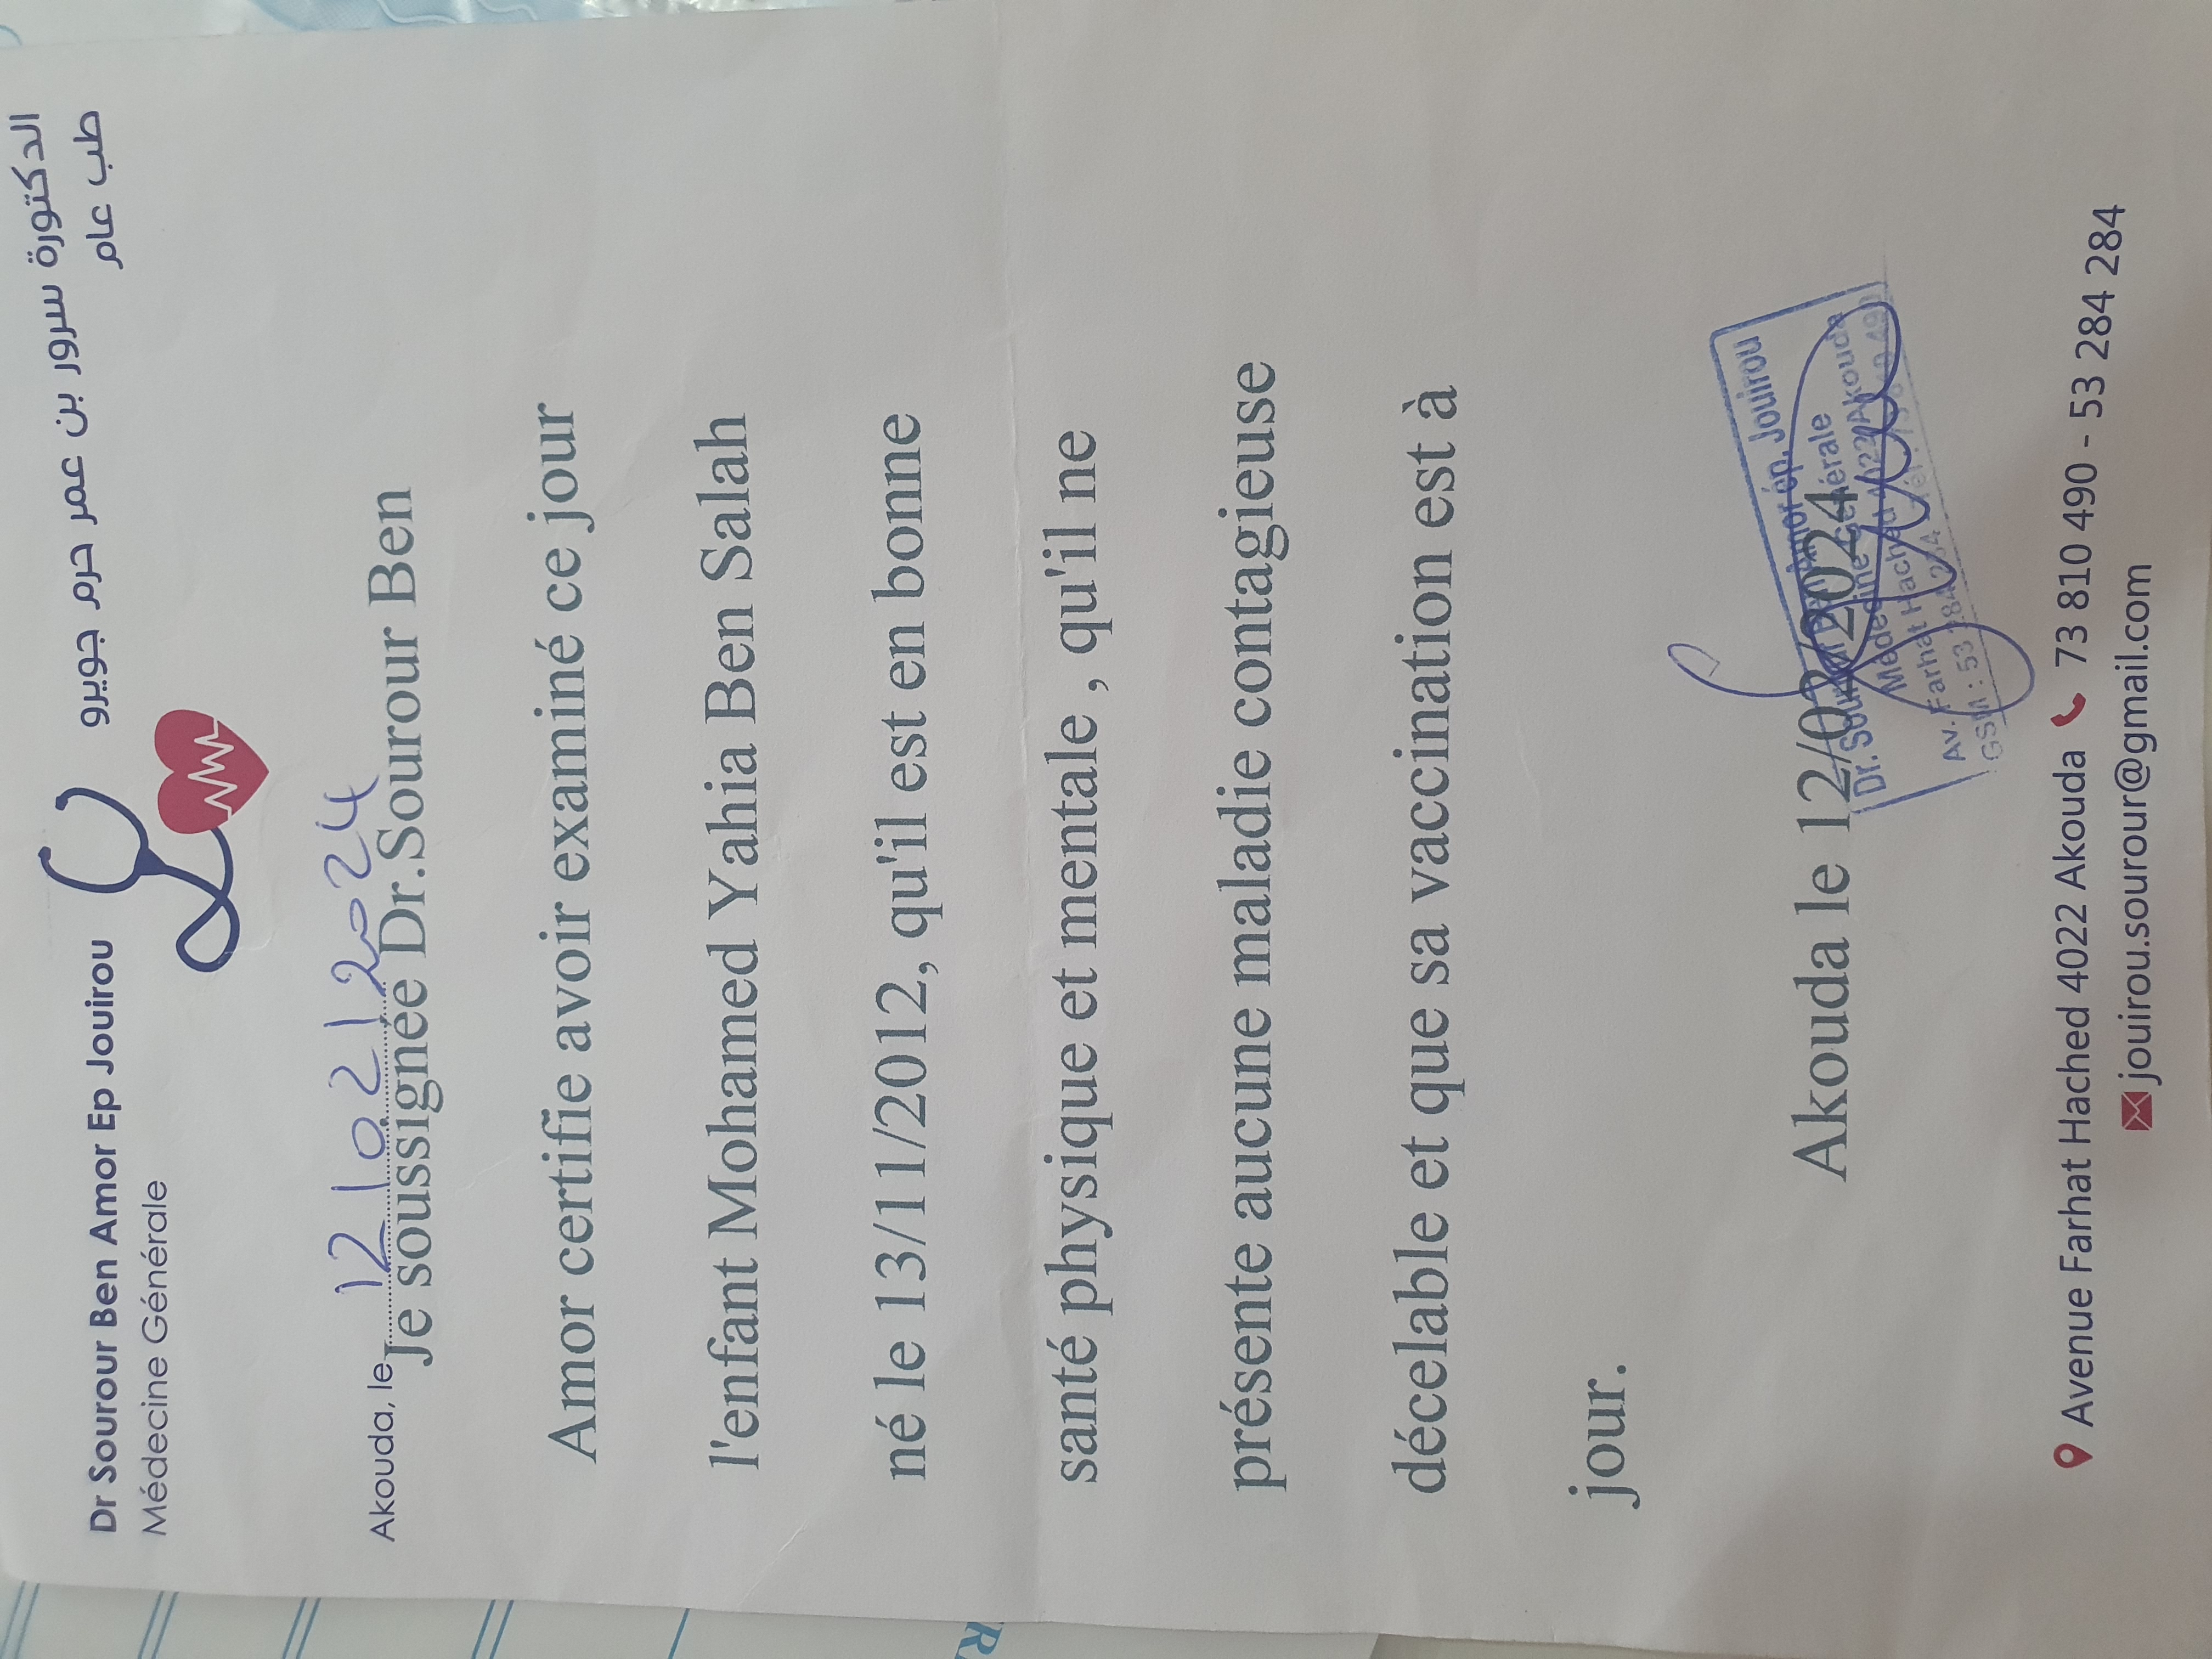 Dr Sourour Ben Amor Ep Jouirou
Médecine Générale
الدكتورة سرور بن عمر حرم جويرو
طب عام
Akouda, le 12/02/2024
Je soussignée Dr.Sourour Ben
Amor certifie avoir examiné ce jour
l'enfant Mohamed Yahia Ben Salah
né le 13/11/2012, qu'il est en bonne
santé physique et mentale , qu'il ne
présente aucune maladie contagieuse
décelable et que sa vaccination est à
jour.
Akouda le 12/02/2024
Dr. Sourour Ben Amor ép. Jouirou
Médecine Générale
Av. Farhat Hached 4022 Akouda
GSM : 53 284 284 - Tél.: 73 810 490
Avenue Farhat Hached 4022 Akouda 73 810 490 - 53 284 284
jouirou.sourour@gmail.com